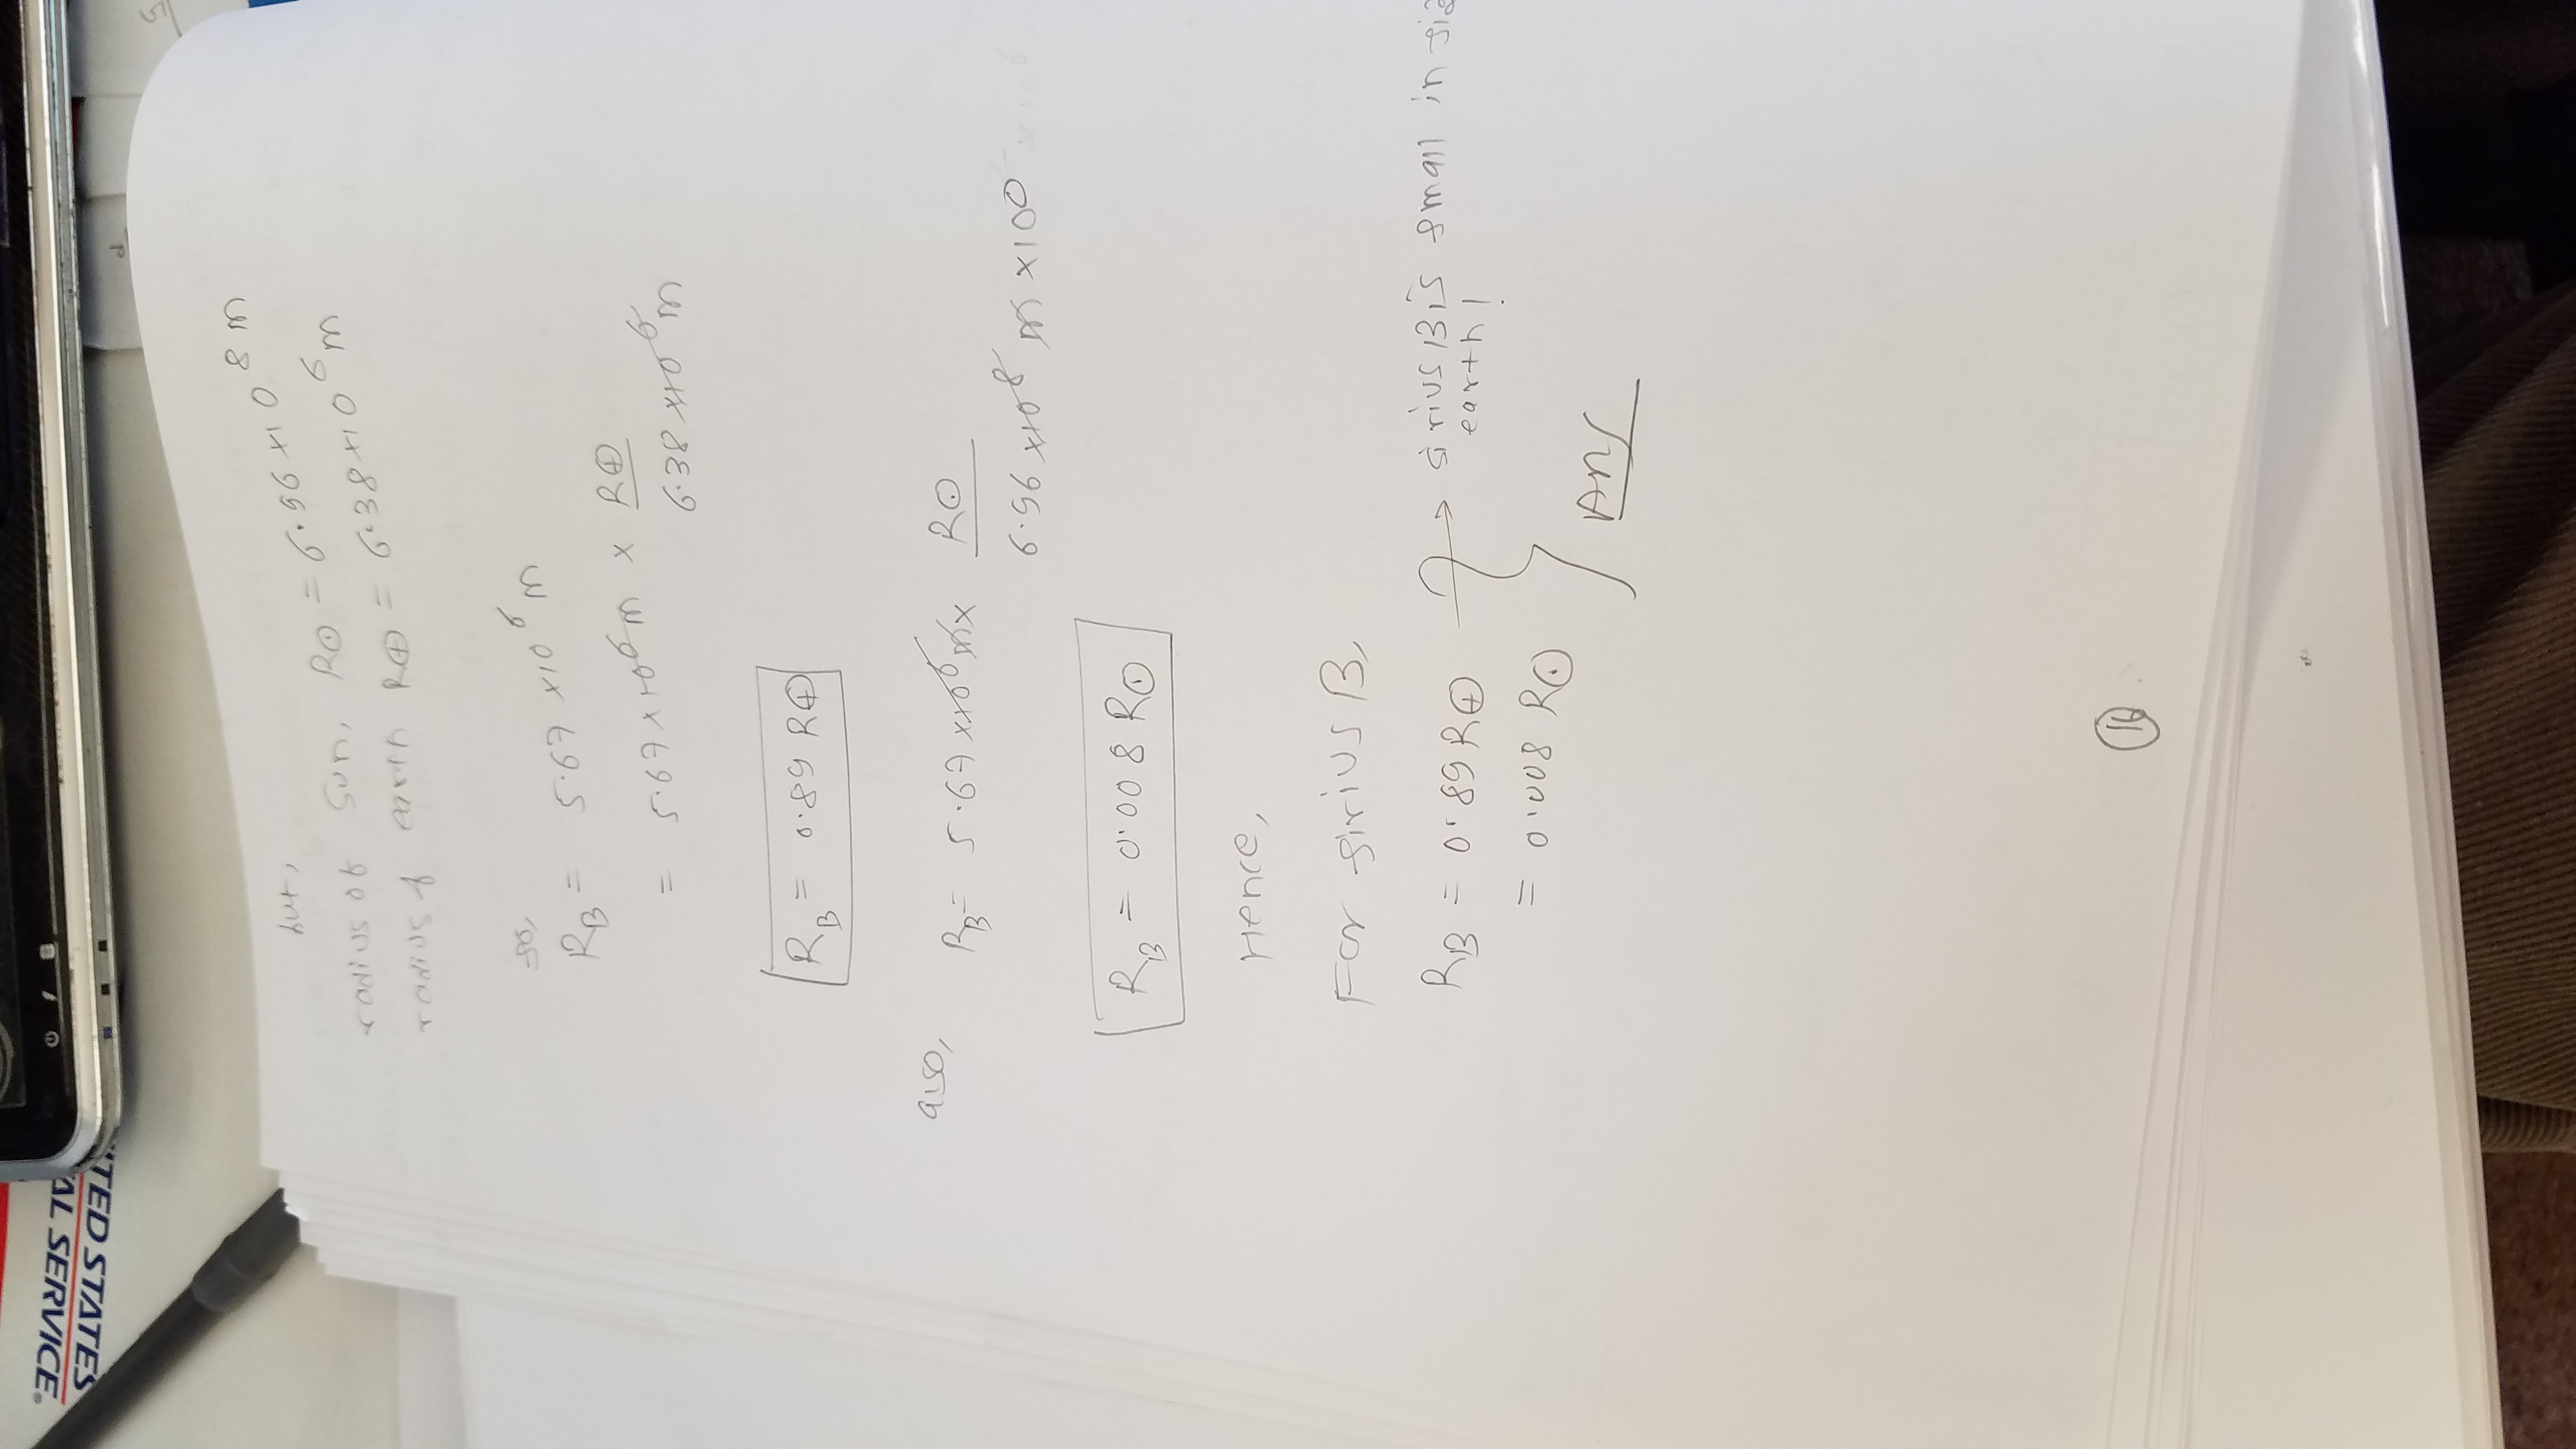 UNITED STATES
AL SERVICE®
but,
radius of Sun, R⊙ = 6.96 ×10^8 m
radius of earth R⊕ = 6.38×10^6 m
so,
R_B = 5.67 ×10^6 m
= 5.67×10^6 m × R⊕ / 6.38 ×10^6 m
R_B = 0.89 R⊕
also, R_B = 5.67 ×10^6 m × R⊙ / 6.96 ×10^8 m ×100
R_B = 0.008 R⊙
Hence,
For sirius B,
R_B = 0.89 R⊕ → sirius B is small in
earth!
= 0.008 R⊙
Ans
16